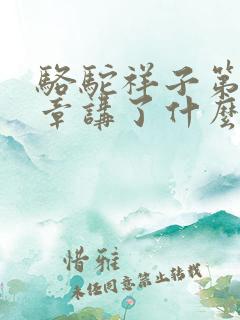 駱駝祥子第
章講了什麼
惜雅
未任同意禁止轉載